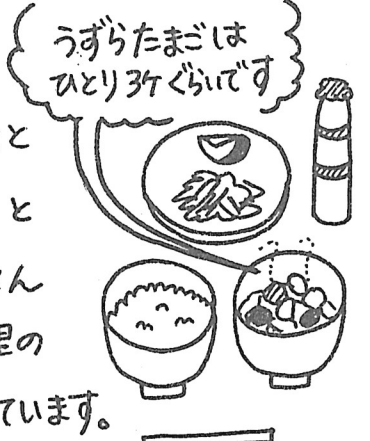 うずらたまごは
ひとり3ケぐらいです
と
と
ん
の
ています。